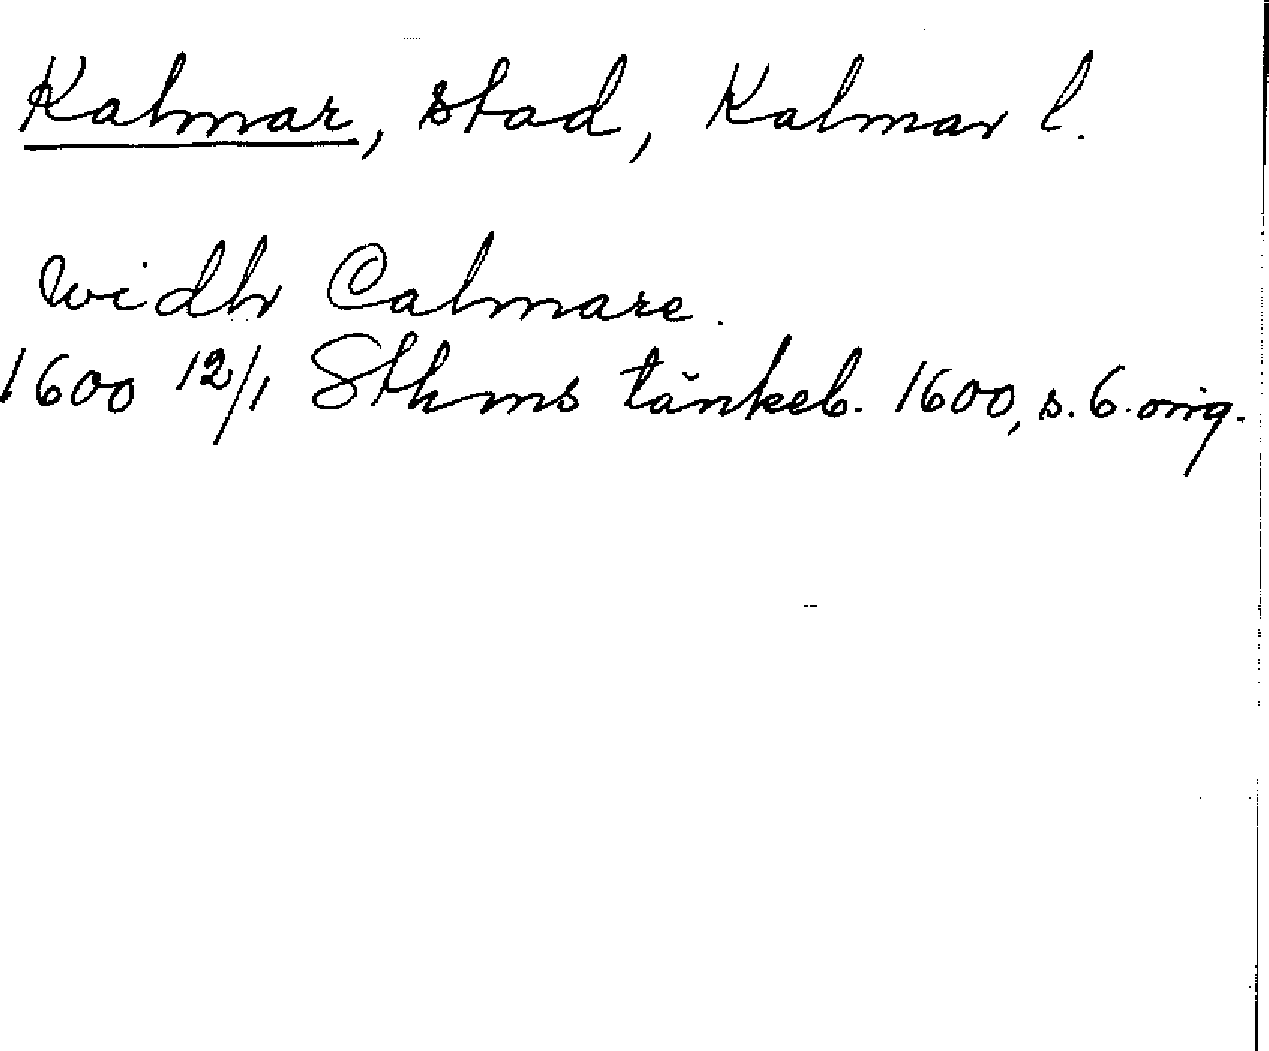 Kalmar, stad, Kalmar l.
widh Calmare.
1600 12/1 Sthms tänkeb. 1600, s. 6. orig.